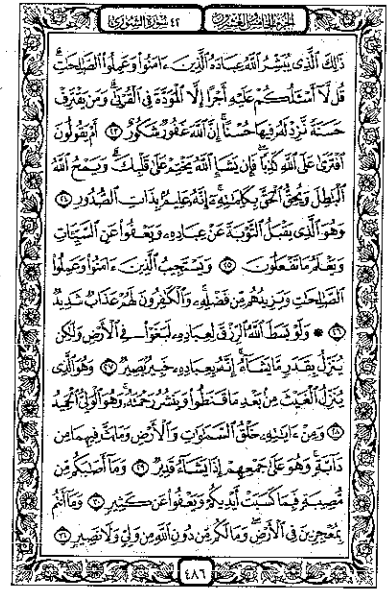 الجزء الخامس والعشرون ٤٢ سورة الشورى
ذَٰلِكَ ٱلَّذِي يُبَشِّرُ ٱللَّهُ عِبَادَهُ ٱلَّذِينَ ءَامَنُوا۟ وَعَمِلُوا۟ ٱلصَّٰلِحَٰتِ ۗ
قُل لَّآ أَسْـَٔلُكُمْ عَلَيْهِ أَجْرًا إِلَّا ٱلْمَوَدَّةَ فِي ٱلْقُرْبَىٰ ۗ وَمَن يَقْتَرِفْ
حَسَنَةً نَّزِدْ لَهُۥ فِيهَا حُسْنًا ۚ إِنَّ ٱللَّهَ غَفُورٌ شَكُورٌ ٢٣ أَمْ يَقُولُونَ
ٱفْتَرَىٰ عَلَى ٱللَّهِ كَذِبًا ۖ فَإِن يَشَإِ ٱللَّهُ يَخْتِمْ عَلَىٰ قَلْبِكَ ۗ وَيَمْحُ ٱللَّهُ
ٱلْبَٰطِلَ وَيُحِقُّ ٱلْحَقَّ بِكَلِمَٰتِهِۦٓ ۚ إِنَّهُۥ عَلِيمٌۢ بِذَاتِ ٱلصُّدُورِ ٢٤
وَهُوَ ٱلَّذِي يَقْبَلُ ٱلتَّوْبَةَ عَنْ عِبَادِهِۦ وَيَعْفُوا۟ عَنِ ٱلسَّيِّـَٔاتِ
وَيَعْلَمُ مَا تَفْعَلُونَ ٢٥ وَيَسْتَجِيبُ ٱلَّذِينَ ءَامَنُوا۟ وَعَمِلُوا۟
ٱلصَّٰلِحَٰتِ وَيَزِيدُهُم مِّن فَضْلِهِۦ ۚ وَٱلْكَٰفِرُونَ لَهُمْ عَذَابٌ شَدِيدٌ
٢٦ ۞ وَلَوْ بَسَطَ ٱللَّهُ ٱلرِّزْقَ لِعِبَادِهِۦ لَبَغَوْا۟ فِي ٱلْأَرْضِ وَلَٰكِن
يُنَزِّلُ بِقَدَرٍ مَّا يَشَآءُ ۚ إِنَّهُۥ بِعِبَادِهِۦ خَبِيرٌۢ بَصِيرٌ ٢٧ وَهُوَ ٱلَّذِي
يُنَزِّلُ ٱلْغَيْثَ مِنۢ بَعْدِ مَا قَنَطُوا۟ وَيَنشُرُ رَحْمَتَهُۥ ۚ وَهُوَ ٱلْوَلِيُّ ٱلْحَمِيدُ
٢٨ وَمِنْ ءَايَٰتِهِۦ خَلْقُ ٱلسَّمَٰوَٰتِ وَٱلْأَرْضِ وَمَا بَثَّ فِيهِمَا مِن
دَآبَّةٍ ۚ وَهُوَ عَلَىٰ جَمْعِهِمْ إِذَا يَشَآءُ قَدِيرٌ ٢٩ وَمَآ أَصَٰبَكُم مِّن
مُّصِيبَةٍ فَبِمَا كَسَبَتْ أَيْدِيكُمْ وَيَعْفُوا۟ عَن كَثِيرٍ ٣٠ وَمَآ أَنتُم
بِمُعْجِزِينَ فِي ٱلْأَرْضِ ۖ وَمَا لَكُم مِّن دُونِ ٱللَّهِ مِن وَلِيٍّ وَلَا نَصِيرٍ ٣١
٤٨٦